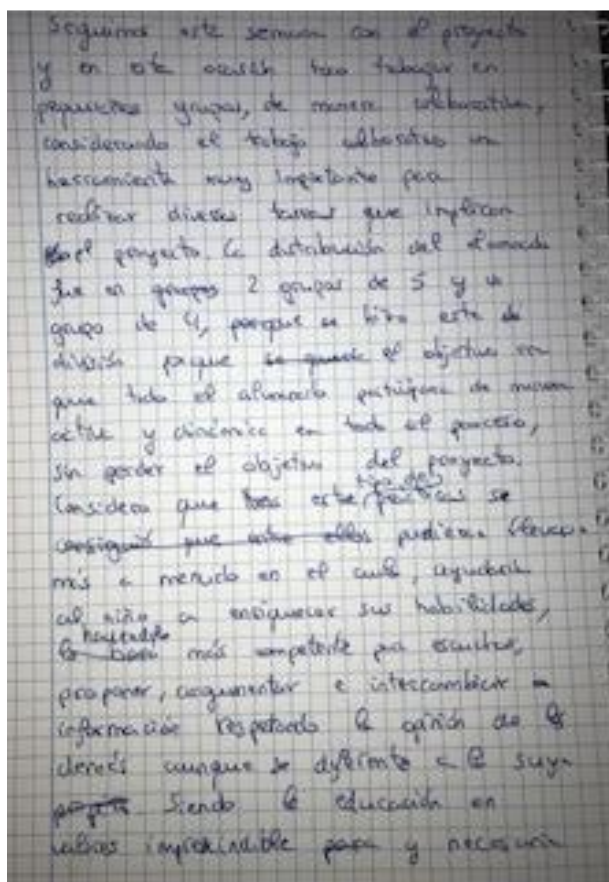 Seguimos esta semana con el proyecto
y en esta ocasión toca trabajar en
pequeños grupos, de manera colaborativa,
considerando el trabajo colaborativo una
herramienta muy importante para
realizar diversas tareas que implican
el proyecto. La distribución del alumnado
fue en grupos 2 grupos de 5 y un
grupo de 4, porque se hizo esta
división porque se el objetivo era
que todo el alumnado participara de manera
activa y dinámica en todo el proceso,
sin perder el objetivo del proyecto.
Considero que si este prácticas se
consiguió que entre ellos pudieran llevar
más a menudo en el aula, ayudaría
al niño a enriquecer sus habilidades,
haciéndolo
más competente para escuchar,
proponer, argumentar e intercambiar
información respetando la opinión de los
demás aunque sea diferente a la suya
Siendo la educación en
valores imprescindible para y necesaria